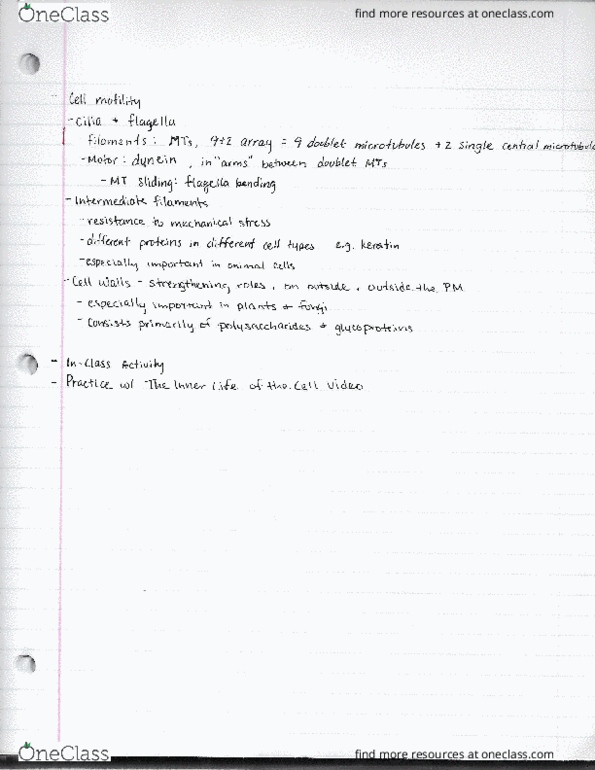 OneClass
find more resources at oneclass.com
- Cell motility
- Cilia + flagella
filaments: MTs, 9+2 array = 9 doublet microtubules + 2 single central microtubule
- Motor: dynein, in "arms" between doublet MTs
- MT sliding: flagella bending
- Intermediate filaments
- resistance to mechanical stress
- different proteins in different cell types e.g. keratin
- especially important in animal cells
- Cell walls - strengthening roles, on outside, outside the PM
- especially important in plants + fungi
- Consists primarily of polysaccharides + glycoproteins
- In-Class Activity
- Practice w/ The Inner Life of the Cell Video
OneClass
find more resources at oneclass.com